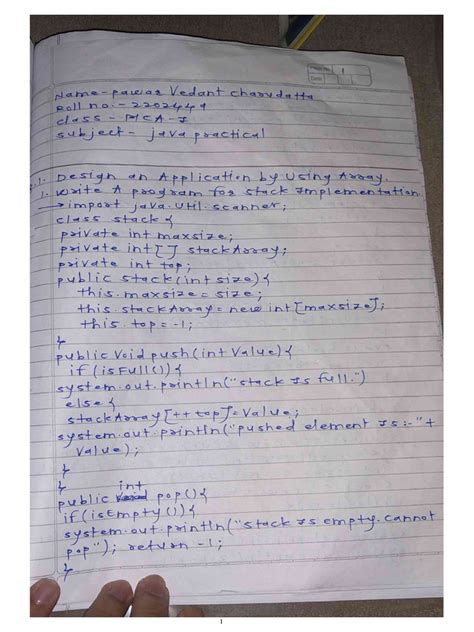 Page No. 1
Date
Name - pawar Vedant charudatta
Roll no. - 2202449
class - MCA - I
subject - java practical
.1. Design an Application by Using Array.
1. Write A program for stack Implementation
→ import java.util.scanner;
class stack {
private int maxsize;
private int[] stackArray;
private int top;
public stack(int size){
this.maxsize = size;
this.stackArray = new int[maxsize];
this.top = -1;
}
public Void push(int Value){
if (isFull()){
system.out.println("stack Is full.")
else {
stackArray[++top]=Value;
system.out.println("pushed element Is:-"+
Value);
}
}
int
public pop(){
if(isEmpty()){
system.out.println("stack Is empty.cannot
pop"); return -1;
}
1